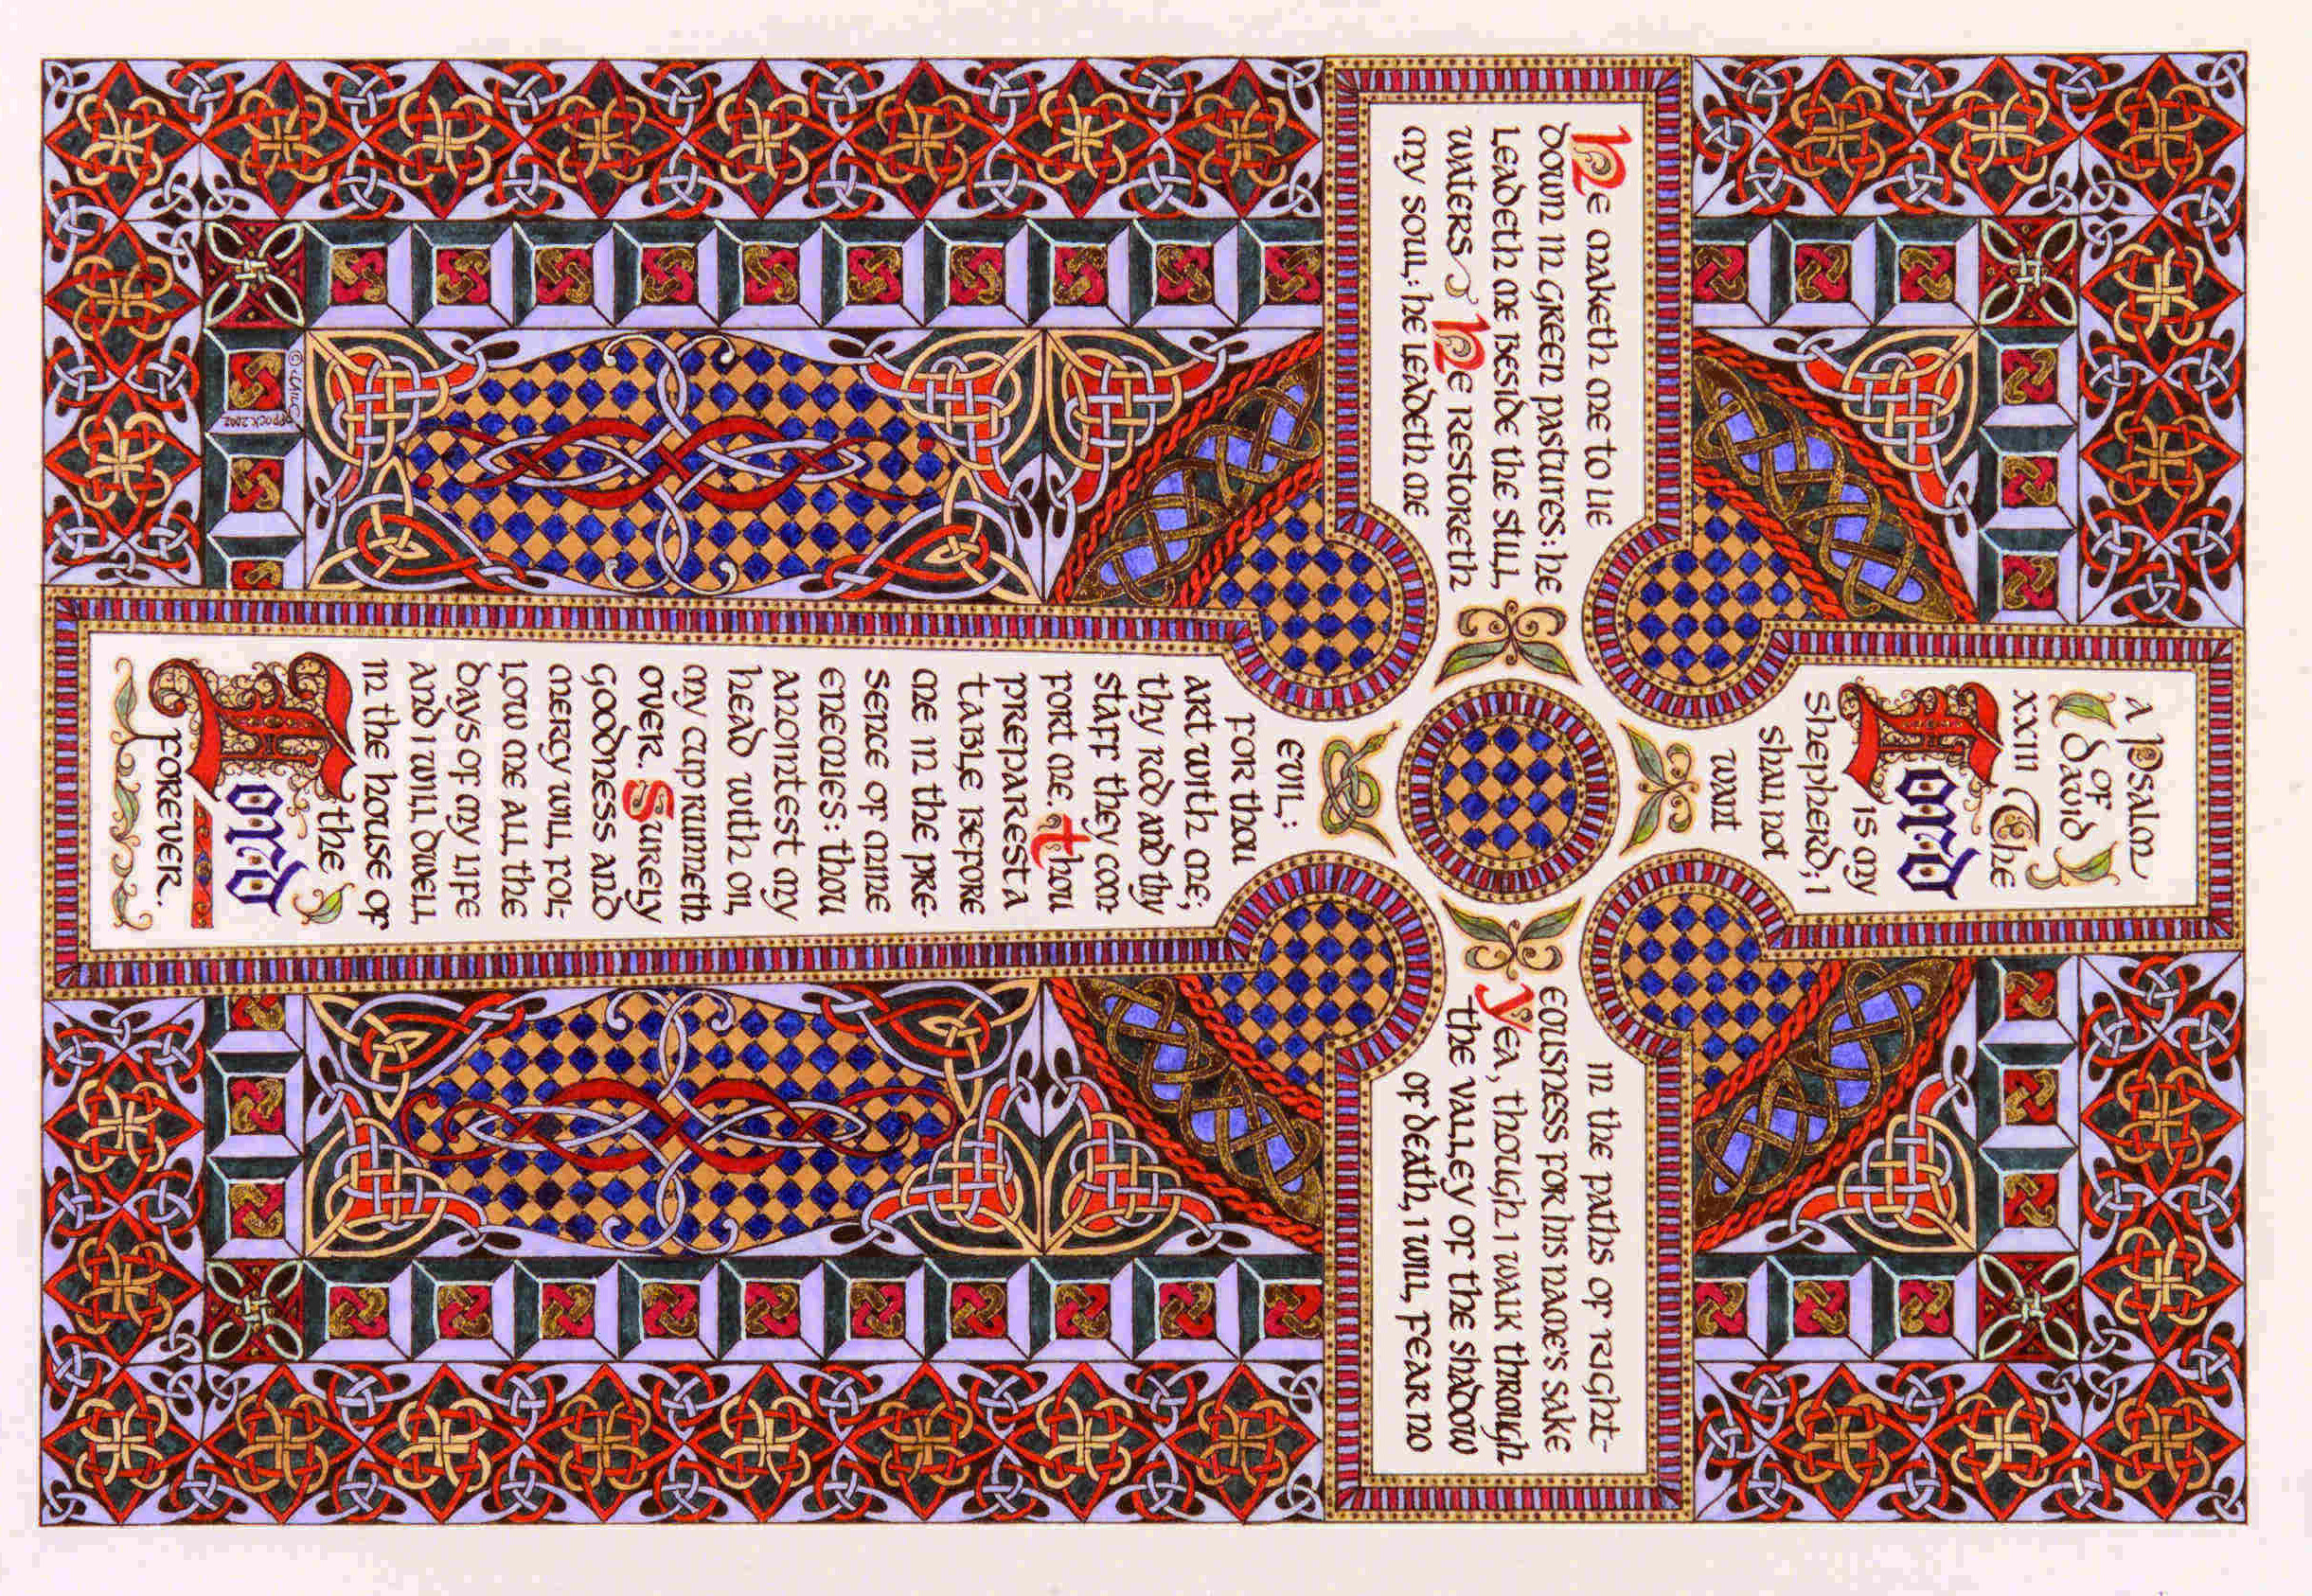 A Psalm
of
David
XXIII The
Lord
is my
shepherd; I
shall not
want
He maketh me to lie
down in green pastures: he
leadeth me beside the still
waters He restoreth
my soul: he leadeth me
in the paths of right-
eousness for his name's sake
Yea, though I walk through
the valley of the shadow
of death, I will fear no
evil:
for thou
art with me;
thy rod and thy
staff they com-
fort me. Thou
preparest a
table before
me in the pre-
sence of mine
enemies: thou
anointest my
head with oil,
my cup runneth
over. Surely
goodness and
mercy will fol-
low me all the
days of my life
and I will dwell
in the house of
the
Lord
forever.
2002